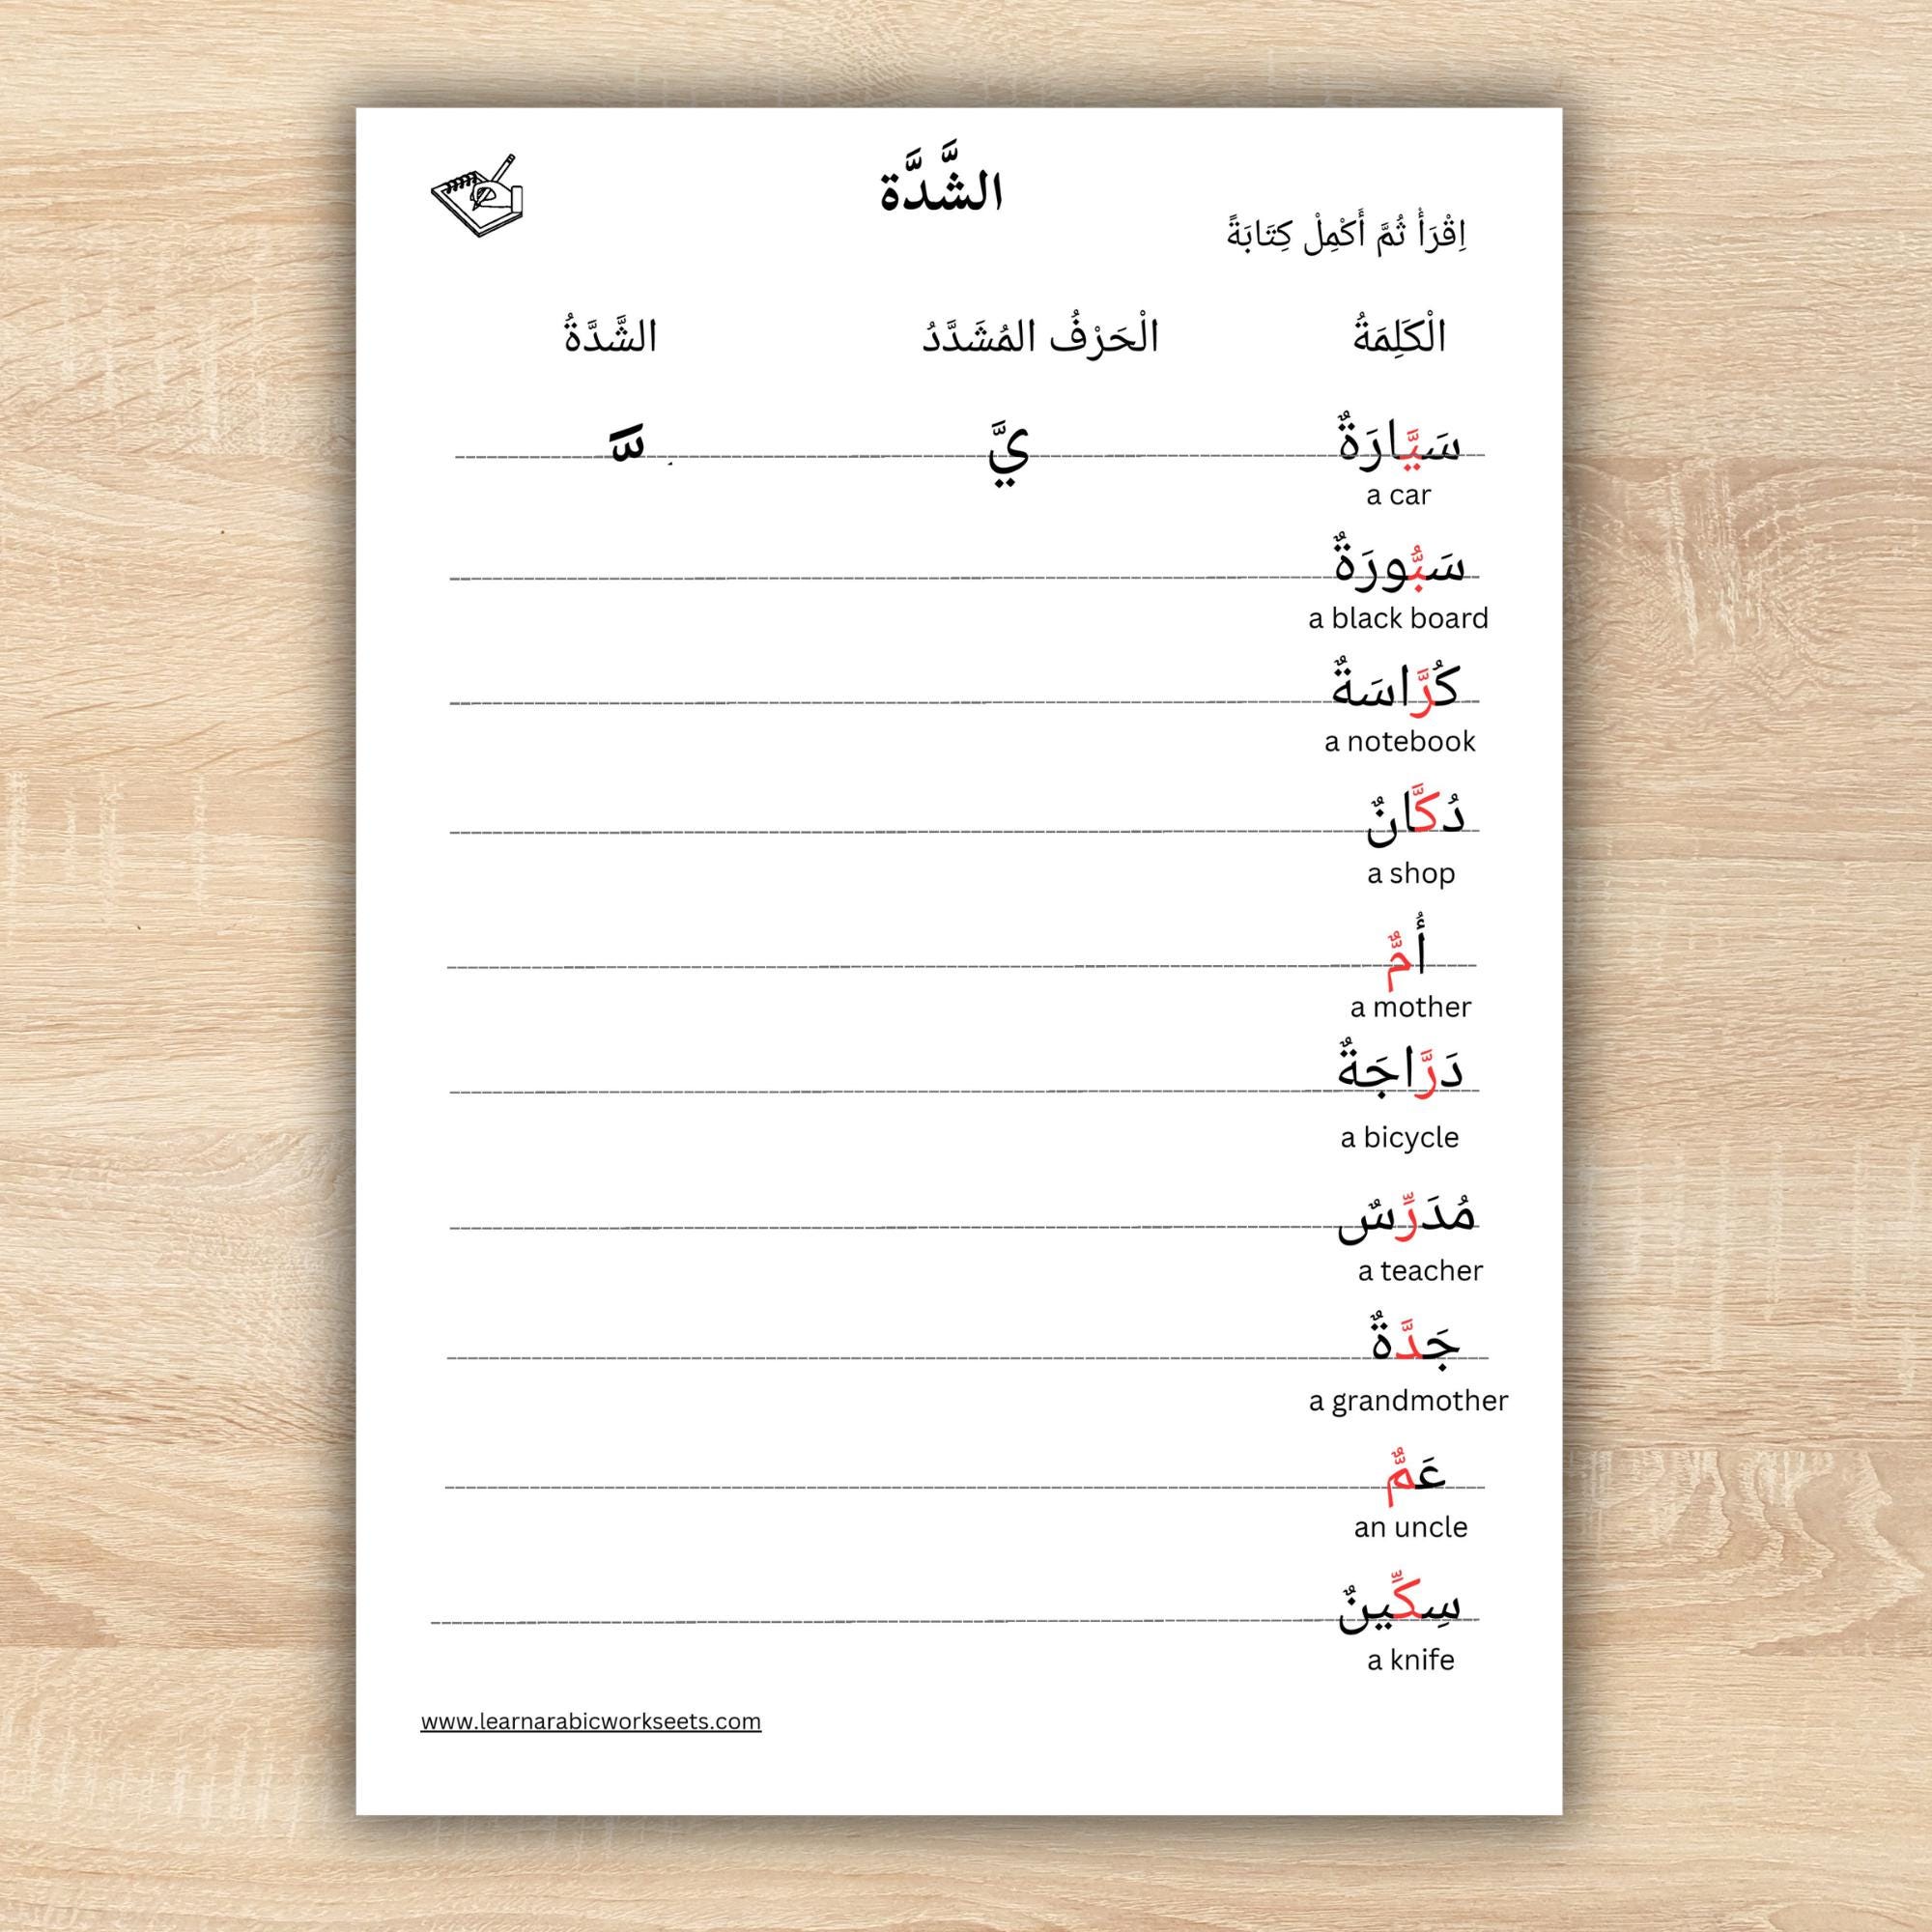 الشَّدَّة
اِقْرَأْ ثُمَّ أَكْمِلْ كِتَابَةً
الْكَلِمَةُ الْحَرْفُ المُشَدَّدُ الشَّدَّةُ
سَيَّارَةٌ يَّ ـَّ
a car
سَبُّورَةٌ
a black board
كُرَّاسَةٌ
a notebook
دُكَّانٌ
a shop
أُمٌّ
a mother
دَرَّاجَةٌ
a bicycle
مُدَرِّسٌ
a teacher
جَدَّةٌ
a grandmother
عَمٌّ
an uncle
سِكِّينٌ
a knife
www.learnarabicworkseets.com